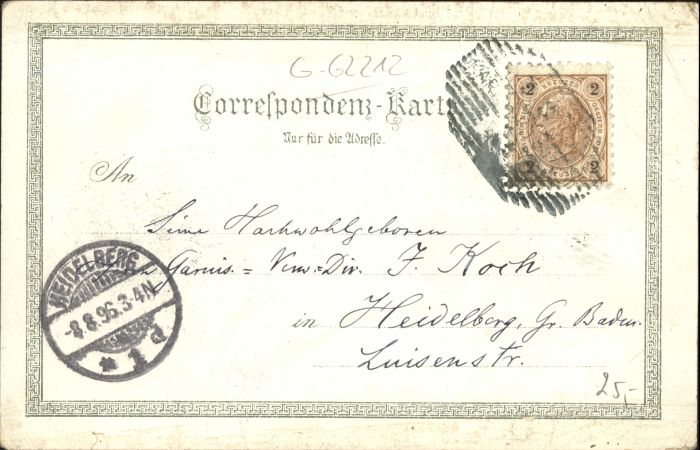 G-62212
Correspondenz-Karte
Nur für die Adresse.
2 KREUZER 2
2 2
An
Seine Hochwohlgeboren
Garnis. = Verw.=Dir. F. Koch
in Heidelberg, Gr. Baden.
Luisenstr.
HEIDELBERG
-8.8.96.3-4N
* 1 d
25,-